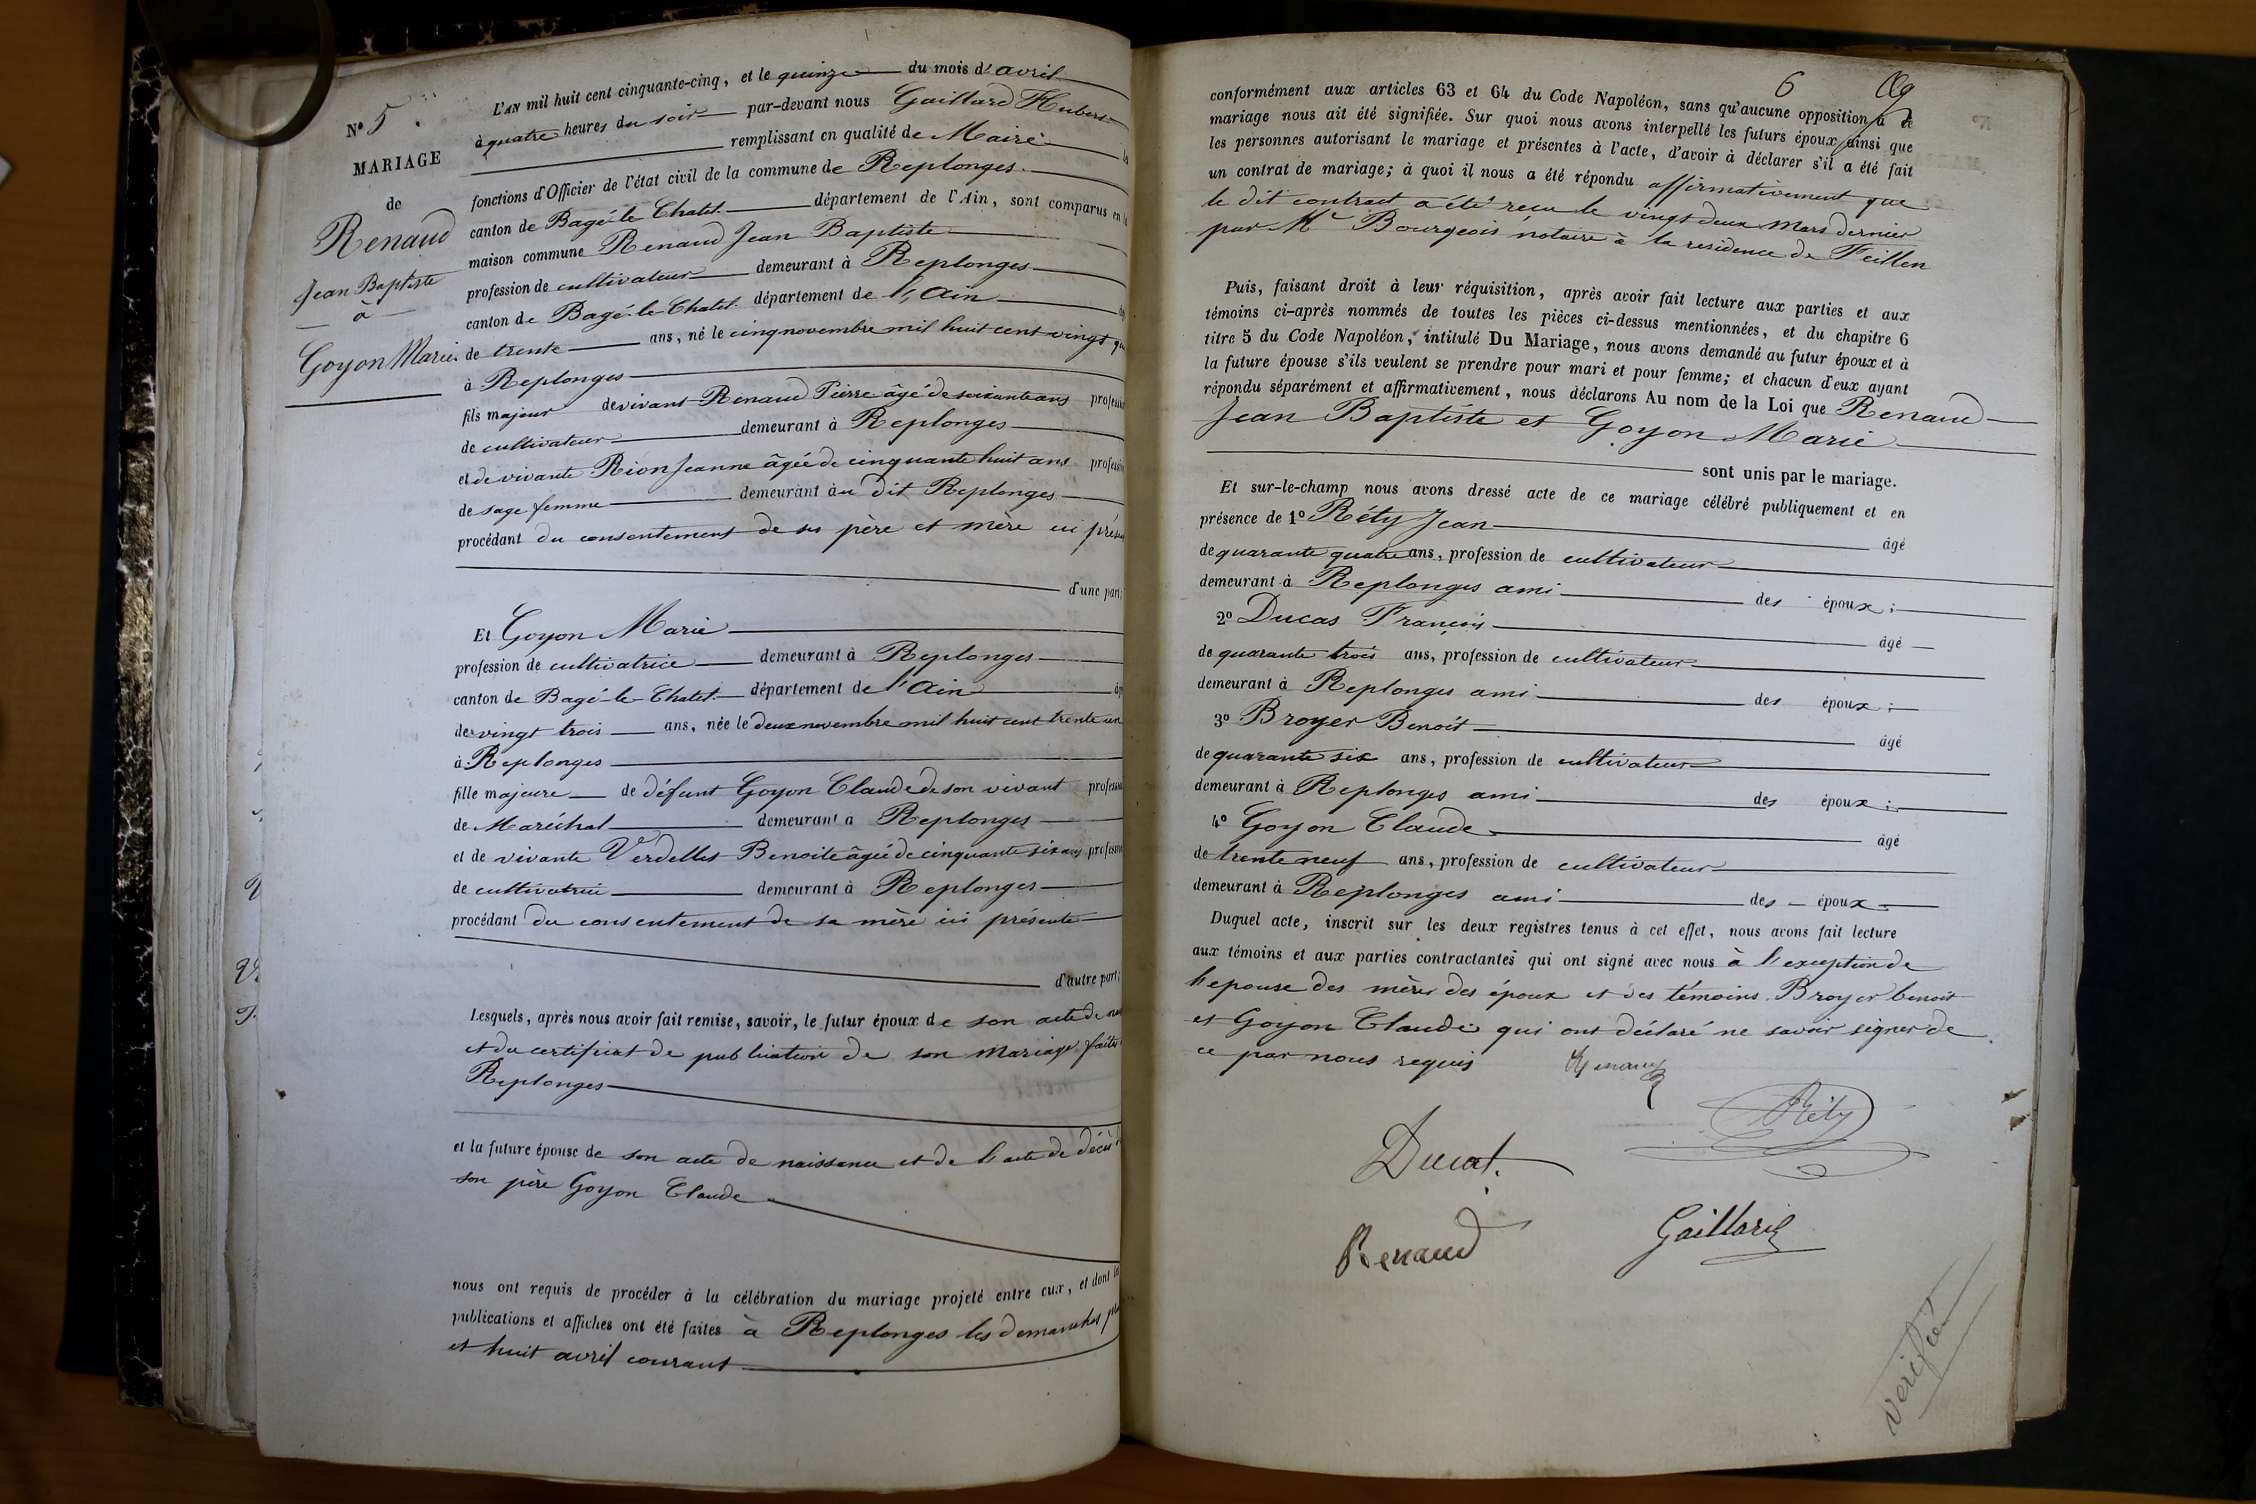 N° 5.
MARIAGE
de
Renaud
Jean Baptiste
à
Goyon Marie.
L'AN mil huit cent cinquante-cinq, et le quinze du mois d'avril
à quatre heures du soir par-devant nous Gaillard Hubert
remplissant en qualité de Maire
fonctions d'Officier de l'état civil de la commune de Replonges.
canton de Bagé-le-Chatel département de l'Ain, sont comparus en
maison commune Renaud Jean Baptiste
profession de cultivateur demeurant à Replonges
canton de Bagé-le-Chatel département de l'Ain
de trente ans, né le cinq novembre mil huit cent vingt
à Replonges
fils majeur de vivant Renaud Pierre âgé de soixante ans
de cultivateur demeurant à Replonges
et de vivante Rion Jeanne âgée de cinquante huit ans
de sage femme demeurant au dit Replonges
procédant du consentement de ses père et mère ici
d'une part;
Et Goyon Marie
profession de cultivatrice demeurant à Replonges
canton de Bagé-le-Chatel département de l'Ain
de vingt trois ans, née le deux novembre mil huit cent trente un
à Replonges
fille majeure de défunt Goyon Claude de son vivant
de Maréchal demeurant à Replonges
et de vivante Verdelles Benoite âgée de cinquante six ans
de cultivatrice demeurant à Replonges
procédant du consentement de sa mère ici présente
d'autre part;
Lesquels, après nous avoir fait remise, savoir, le futur époux de son acte de
et du certificat de publication de son mariage faites
Replonges
et la future épouse de son acte de naissance et de l'acte de décès
son père Goyon Claude
nous ont requis de procéder à la célébration du mariage projeté entre eux, et dont
publications et affiches ont été faites à Replonges les dimanches
et huit avril courant
6
conformément aux articles 63 et 64 du Code Napoléon, sans qu'aucune opposition à ce
mariage nous ait été signifiée. Sur quoi nous avons interpellé les futurs époux ainsi que
les personnes autorisant le mariage et présentes à l'acte, d'avoir à déclarer s'il a été fait
un contrat de mariage; à quoi il nous a été répondu affirmativement que
le dit contract a été reçu le vingt deux Mars dernier
par Me Bourgeois notaire à la residence de Feillen
Puis, faisant droit à leur réquisition, après avoir fait lecture aux parties et aux
témoins ci-après nommés de toutes les pièces ci-dessus mentionnées, et du chapitre 6
titre 5 du Code Napoléon, intitulé Du Mariage, nous avons demandé au futur époux et à
la future épouse s'ils veulent se prendre pour mari et pour femme; et chacun d'eux ayant
répondu séparément et affirmativement, nous déclarons Au nom de la Loi que Renaud
Jean Baptiste et Goyon Marie
sont unis par le mariage.
Et sur-le-champ nous avons dressé acte de ce mariage célébré publiquement et en
présence de 1° Réty Jean âgé
de quarante quatre ans, profession de cultivateur
demeurant à Replonges ami des époux;
2° Ducas François âgé
de quarante trois ans, profession de cultivateur
demeurant à Replonges ami des époux;
3° Broyer Benoit âgé
de quarante six ans, profession de cultivateur
demeurant à Replonges ami des époux;
4° Goyon Claude âgé
de trente neuf ans, profession de cultivateur
demeurant à Replonges ami des époux.
Duquel acte, inscrit sur les deux registres tenus à cet effet, nous avons fait lecture
aux témoins et aux parties contractantes qui ont signé avec nous à l'exception de
l'epouse des mères des époux et des témoins Broyer benoit
et Goyon Claude qui ont déclaré ne savoir signer de
ce par nous requis
Renaud
Réty
Ducat.
Renaud
Gaillard
vérifié